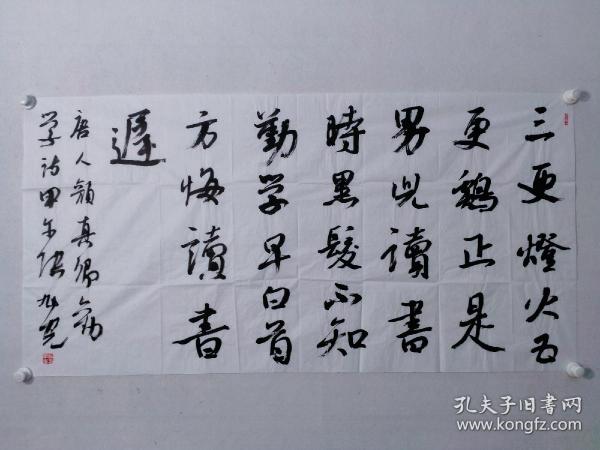 三更燈火五
更鷄正是
男兒讀書
時黑髮不知
勤学早白首
方悔讀書
遲
唐人顔真卿勸
学詩甲午張旭光
孔夫子旧书网
www.kongfz.com